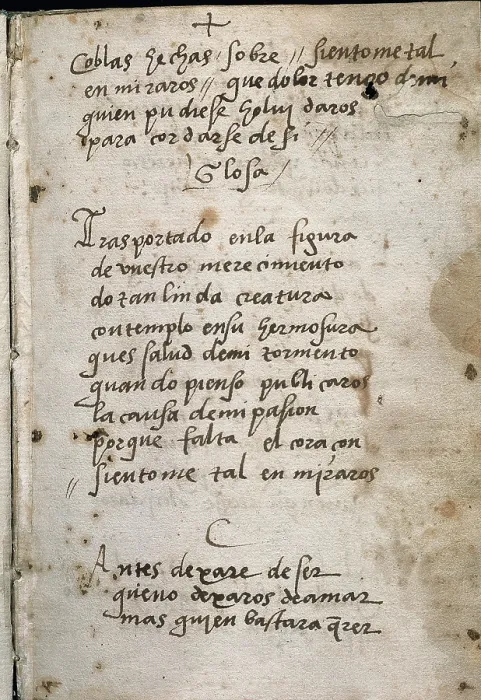 +
Coblas hechas sobre // sientome tal
en miraros // que dolor tengo d mi
quien pudiese holvidaros
para cordarse de si //
Glosa /
Trasportado enla figura
de vuestro merecimiento
do tan linda creatura
contemplo ensu hermosura
ques salud demi tormento
quando pienso publicaros
la causa demi pasion
porque falta el coraçon
// sientome tal en miraros
C
Antes dexare de ser
queno dexaros deamar
mas quien bastara q̄rer